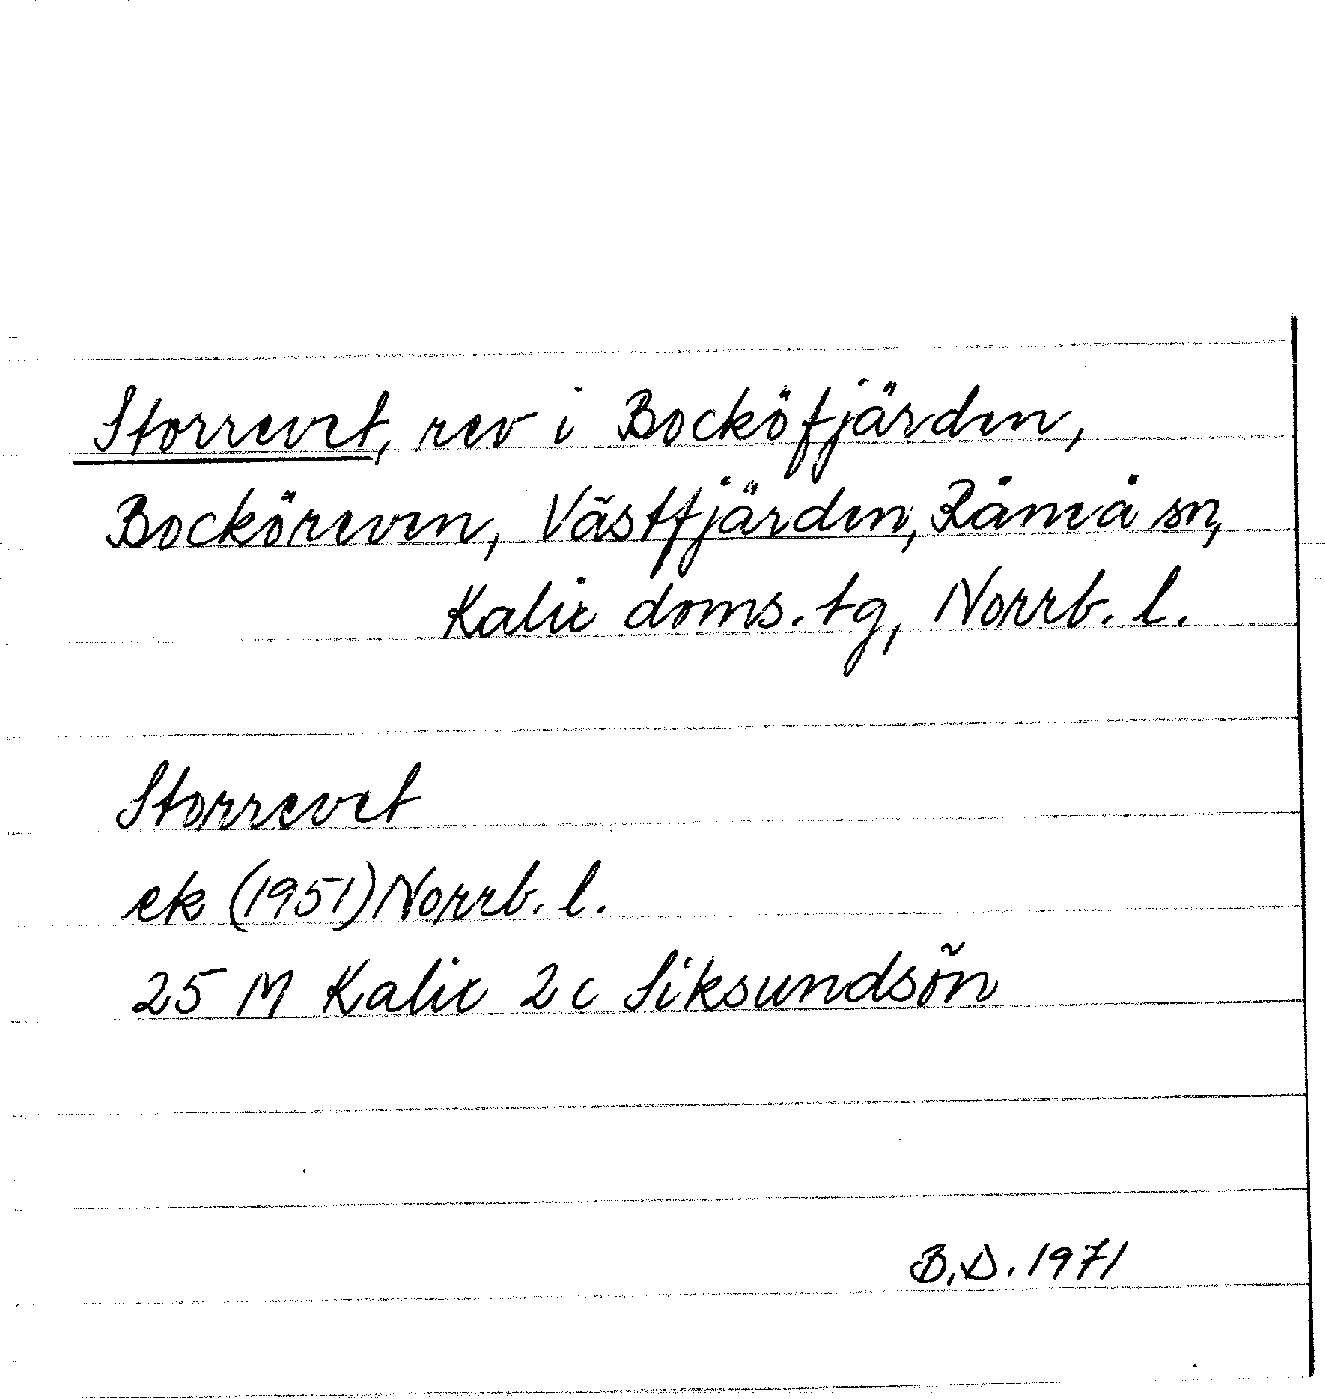 Storrevet, rev i Bocköfjärden,
Bocköreven, Västfjärden, Råneå sn,
Kalix doms.tg, Norrb. l.
Storrevet
ek (1951) Norrb. l.
25 M Kalix 2c Siksundsön
B.D. 1971